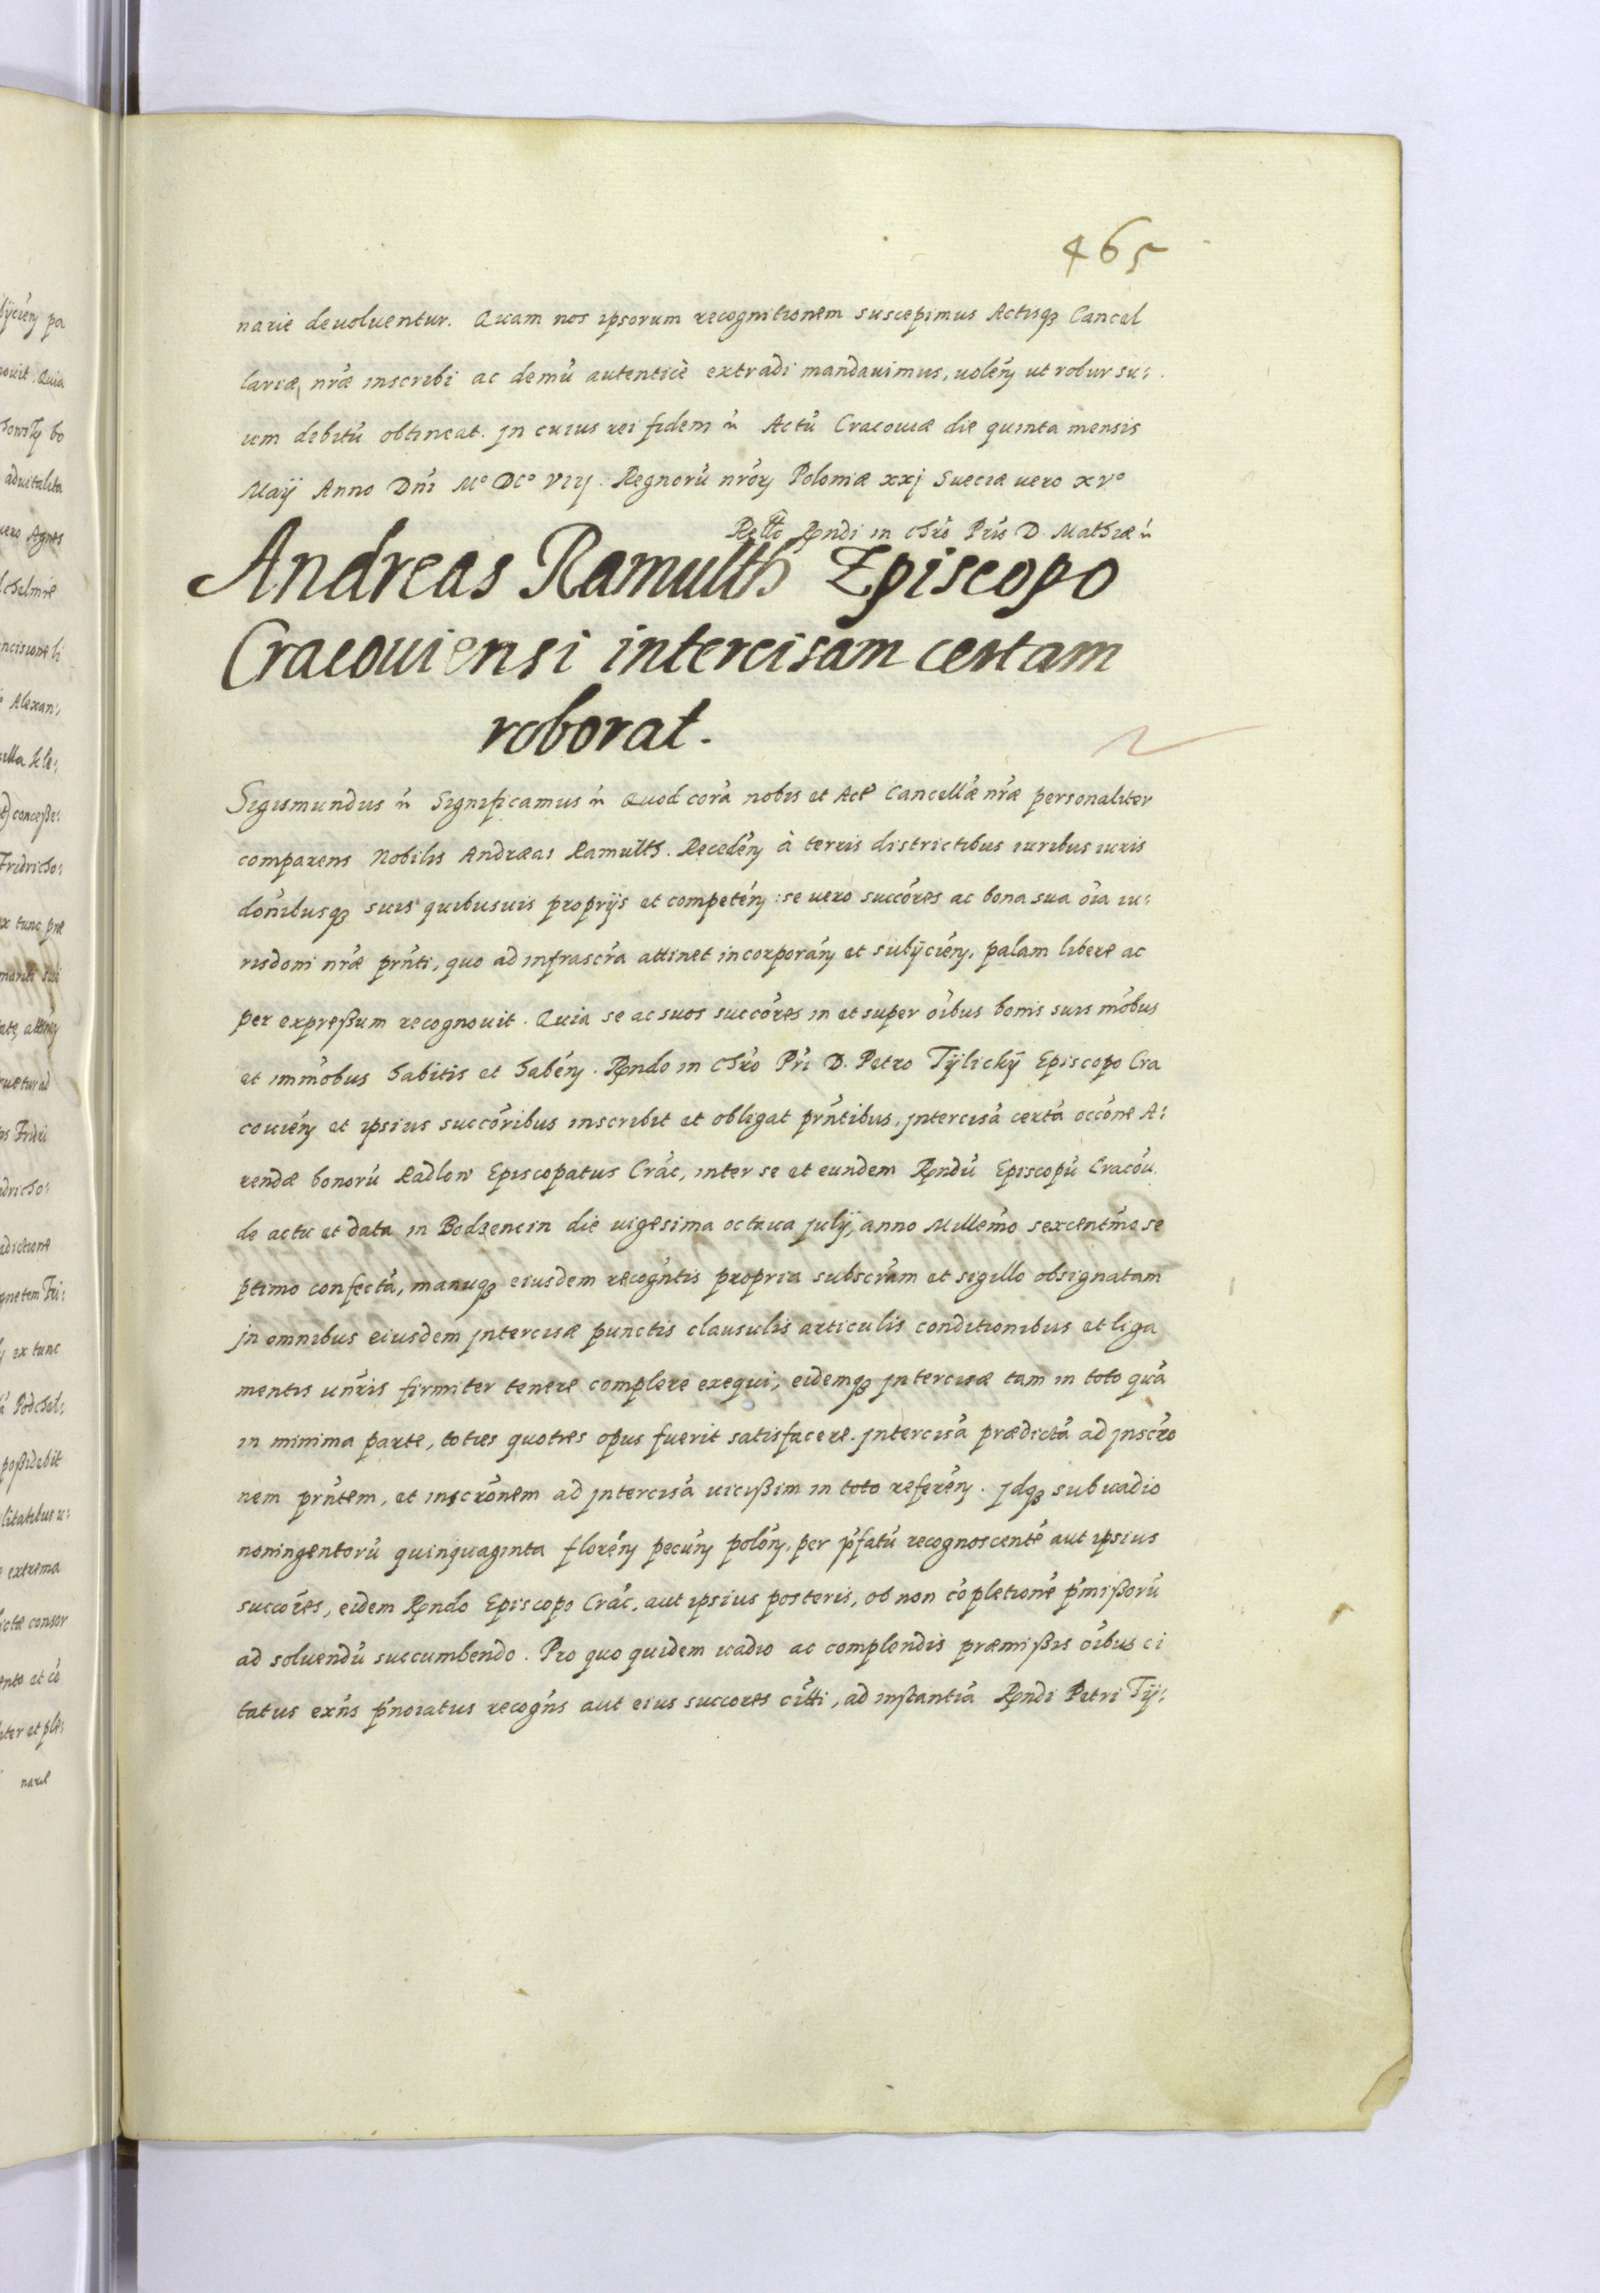 465
narie devoluentur. Quam nos ipsorum recognitionem suscepimus Actisq3 Cancel
lariæ nrǽ inscribi ac demú autenticè extradi mandauimus, volén ut robur su:
um debitú obtineat. Jn cuius rei fidem Actú Cracoviæ die quinta mensis
Maÿ Anno Dní Mo DCo VIIJ. Regnorú nrór Poloniæ xxj Sueciæ vero xvo
Rndi in Chró Prís D. Mathiæ
Andreas Ramulth Episcopo
Cracouiensi intercisam certam
roborat.
Sigismundus Significamus Quod corá nobis et Act Cancellǽ nrǽ personaliter
comparens Nobilis Andræas Ramulth. Recedén à terris districtibus iuribus iuris
dónibusq3 suis quibusuis proprÿs et competén: se vero succóres ac bona sua óia iu:
risdoni nrǽ prńti, quo ad infrascrá attinet incorporán et subÿcién, palam libere ac
per expreßum recognouit. Quia se ac suos succóres in et super óibus bonis suis móbus
et immóbus habitis et habén. Rndo in Chró Prí D. Petro Tÿlickÿ Episcopo Cra
couién et ipsius succóribus inscribit et obligat prńtibus, jntercisá certá occóne A:
rendæ bonorú Radlow Episcopatus Crác, inter se et eundem Rndú Episcopú Cracóu.
de actu et data in Bodzencin die uigesima octaua julÿ, anno Millemó sexcentmó se
ptimo confectá, manuq3 eiusdem recogńtis propria subscrám et sigillo obsignatam
jn omnibus eiusdem jntercisæ punctis clausulis articulis conditionibus et liga
mentis unŕis firmiter tenere complere exequi, eidemq3 jntercisæ tam in toto quá
in minima parte, toties quoties opus fuerit satisfacere. jntercisá prædictá ad jnscró
nem prńtem, et inscrónem ad jntercisá uicißim in toto referén. jdq3 sub vadio
noningentorú quinquaginta florén pecún polón, per ṕfatú recognoscenté aut ipsius
succóres, eidem Rndo Episcopo Crác, aut ipsius posteris, ob non cópletioné ṕmißorú
ad soluendú succumbendo. Pro quo quidem uadio ac complendis præmißis óibus ci
tatus exńs ṕnoiatus recogńs aut eius succores cítti, ad instantiá Rndi Petri Tÿ: